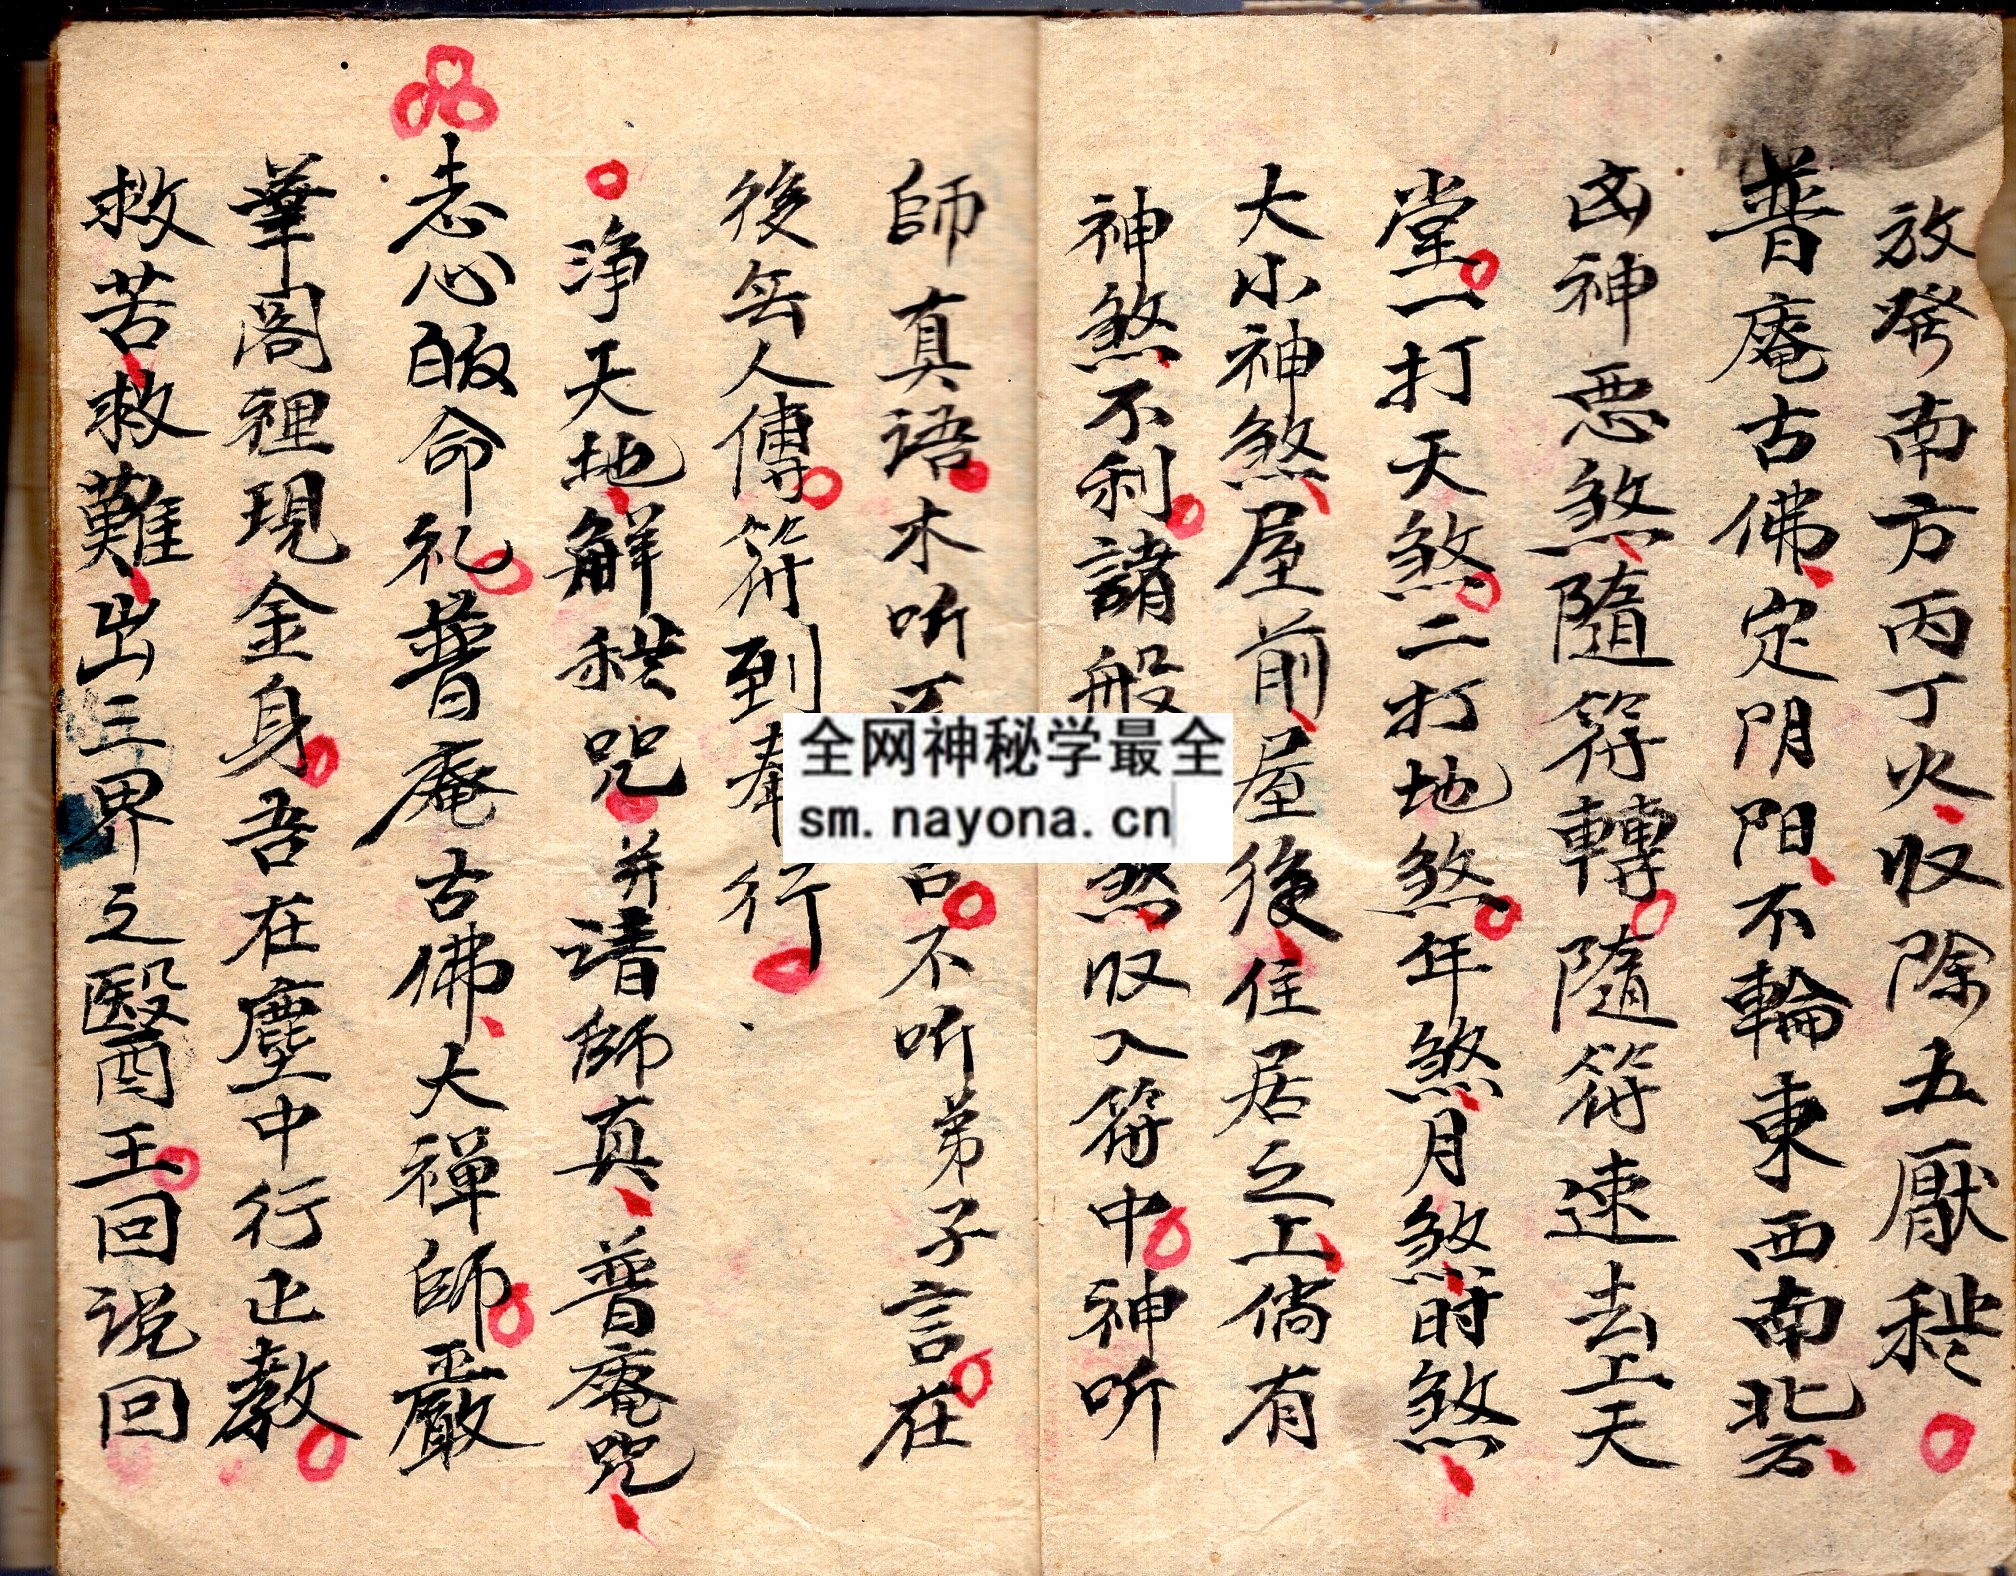 放癹南方丙丁火收除五厭秽
普庵古佛定阴阳不輪東西南北方
凶神悪煞隨符轉隨符速去上天
堂一打天煞二打地煞年煞月煞时煞
大小神煞屋前屋後住居之上倘有
神煞不利諸般煞收入符中神听
師真语木听不听弟子言在
後无人傳符到奉行
净天地解秽咒并请師真普庵咒
志心皈命礼普庵古佛大禅師嚴
華阁裡現金身吾在塵中行正教
救苦救難出三界之醫王回说回
全网神秘学最全
sm.nayona.cn